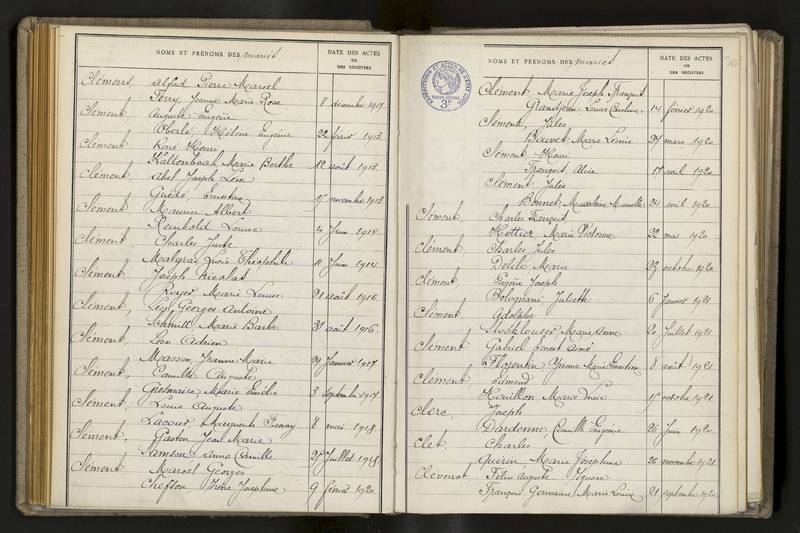 NOMS ET PRÉNOMS DES mariés
DATE DES ACTES
OU
DES REGISTRES
Clément, Alfred Pierre Marcel
Ferry, Jeanne Marie Rose 11 décembre 1917
Clément, Auguste Eugène
Aberlé, Hélène Eugénie 22 février 1913
Clément René Henri
Kaltenbach, Marie Berthe 12 août 1913
Clément Abel Joseph Léon
Guédé, Ernestine novembre 1913
Clément Maurice Albert
Reinhold Louise Juin 1914
Clément, Charles Juste
Malgras, Théophile 11 Juin 1914
Clément, Joseph Nicolas
Royer, Marie Louise 21 août 1916
Clément, Léon Georges Antoine
Schmitt, Marie Barbe 31 août 1916
Clément, Léon Adrien
Masson, Jeanne Marie 29 Janvier 1917
Clément, Camille Auguste
Grosmaire, Marie Emélie 3 septembre 1917
Clément, Louis Auguste
Lacour, Marguerite Fanny 8 mai 1918
Clément, Gaston Jean Marie
Samson, Anne Camille 27 Juillet 1918
Clément Marcel Georges
Chefson Irène Joséphine 9 février 1920
NOMS ET PRÉNOMS DES mariés
DATE DES ACTES
OU
DES REGISTRES
EXPÉDITIONS ET ACTES DE L'ÉTAT CIVIL
3F
Clément, Marie Joseph François
Grandjean, Louise Caroline 14 février 1920
Clément, Jules
Bouvet Marie mars 1920
Clément Henri
François, Alice 17 avril 1920
Clément Jules
Bonnet, Madeleine Marcelle 24 avril 1920
Clément, Charles François
Hottier, Marie 22 mai 1920
Clément Charles Jules
Marie 23 octobre 1920
Clément, Eugène Joseph
Bolognani Juliette 6 Janvier 1921
Clément, Adolphe
Marie Anne 20 Juillet 1921
Clément Gabriel Ernest Aimé
Florentin, Yvonne Marie 8 août 1921
Clément, Edmond
Houillon Marie Lucie octobre 1921
Clerc, Joseph
Dardenne, Camille Eugénie 26 Juin 1920
Clet, Charles
Guérin Marie Joséphine 26 novembre 1921
Clévenot, Félix Auguste
François Germaine Marie Louise 21 septembre 1920